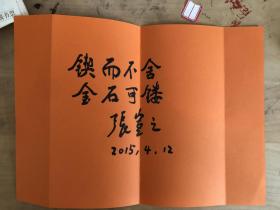 锲而不舍
金石可镂
張豈之
2015,4,12